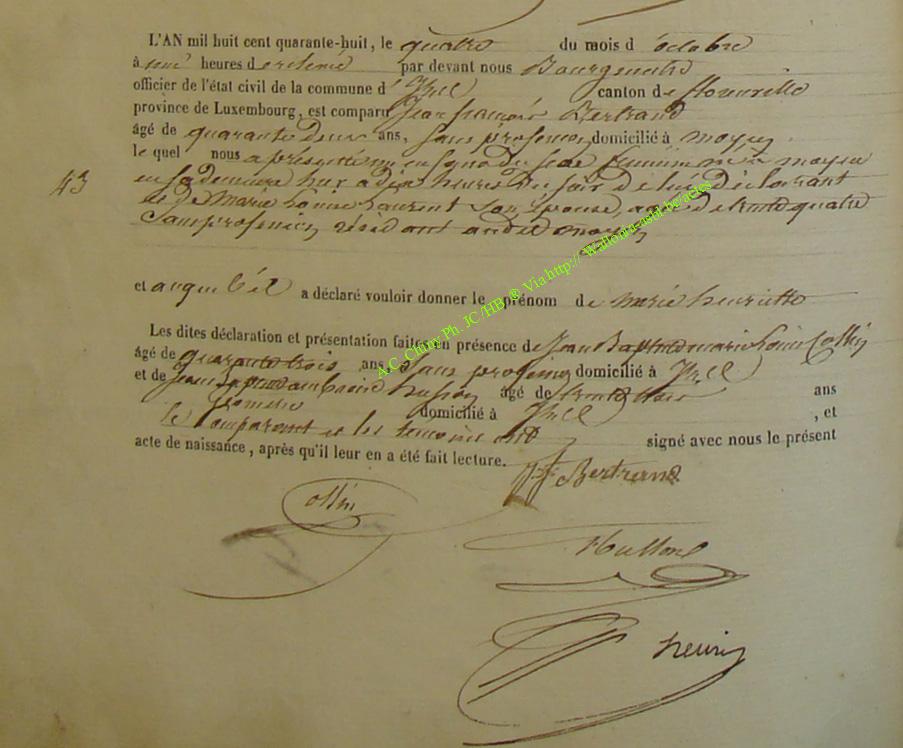 L'AN mil huit cent quarante-huit, le quatre du mois d'octobre
à une heures de relevée par devant nous Bourgmestre
officier de l'état civil de la commune d'Izel canton de florenville
province de Luxembourg, est comparu Jean françois Bertrand
âgé de quarante deux ans, sans profession domicilié à moyen
le quel nous a présenté un enfant du sexe féminin né à moyen
43
en sa demeure hier à dix heures du soir de lui déclarant
et de marie Laurent son épouse, agée de trente quatre
sans profession, résidant audit moyen
et auquel il a déclaré vouloir donner le prénom de marie henriette
Les dites déclaration et présentation faites en présence de Jean Baptiste marie Louis Collin
âgé de quarante trois ans, sans profession domicilié à Izel
et de Jean husson âgé de trente trois ans
géomètre domicilié à Izel , et
le Comparant et les temoins ont signé avec nous le présent
acte de naissance, après qu'il leur en a été fait lecture.
J. f. Bertrand
Collin
Husson
henri
A.C. Chiny Ph. JC/HB ® Via http:// Wallonia-asbl.be/actes